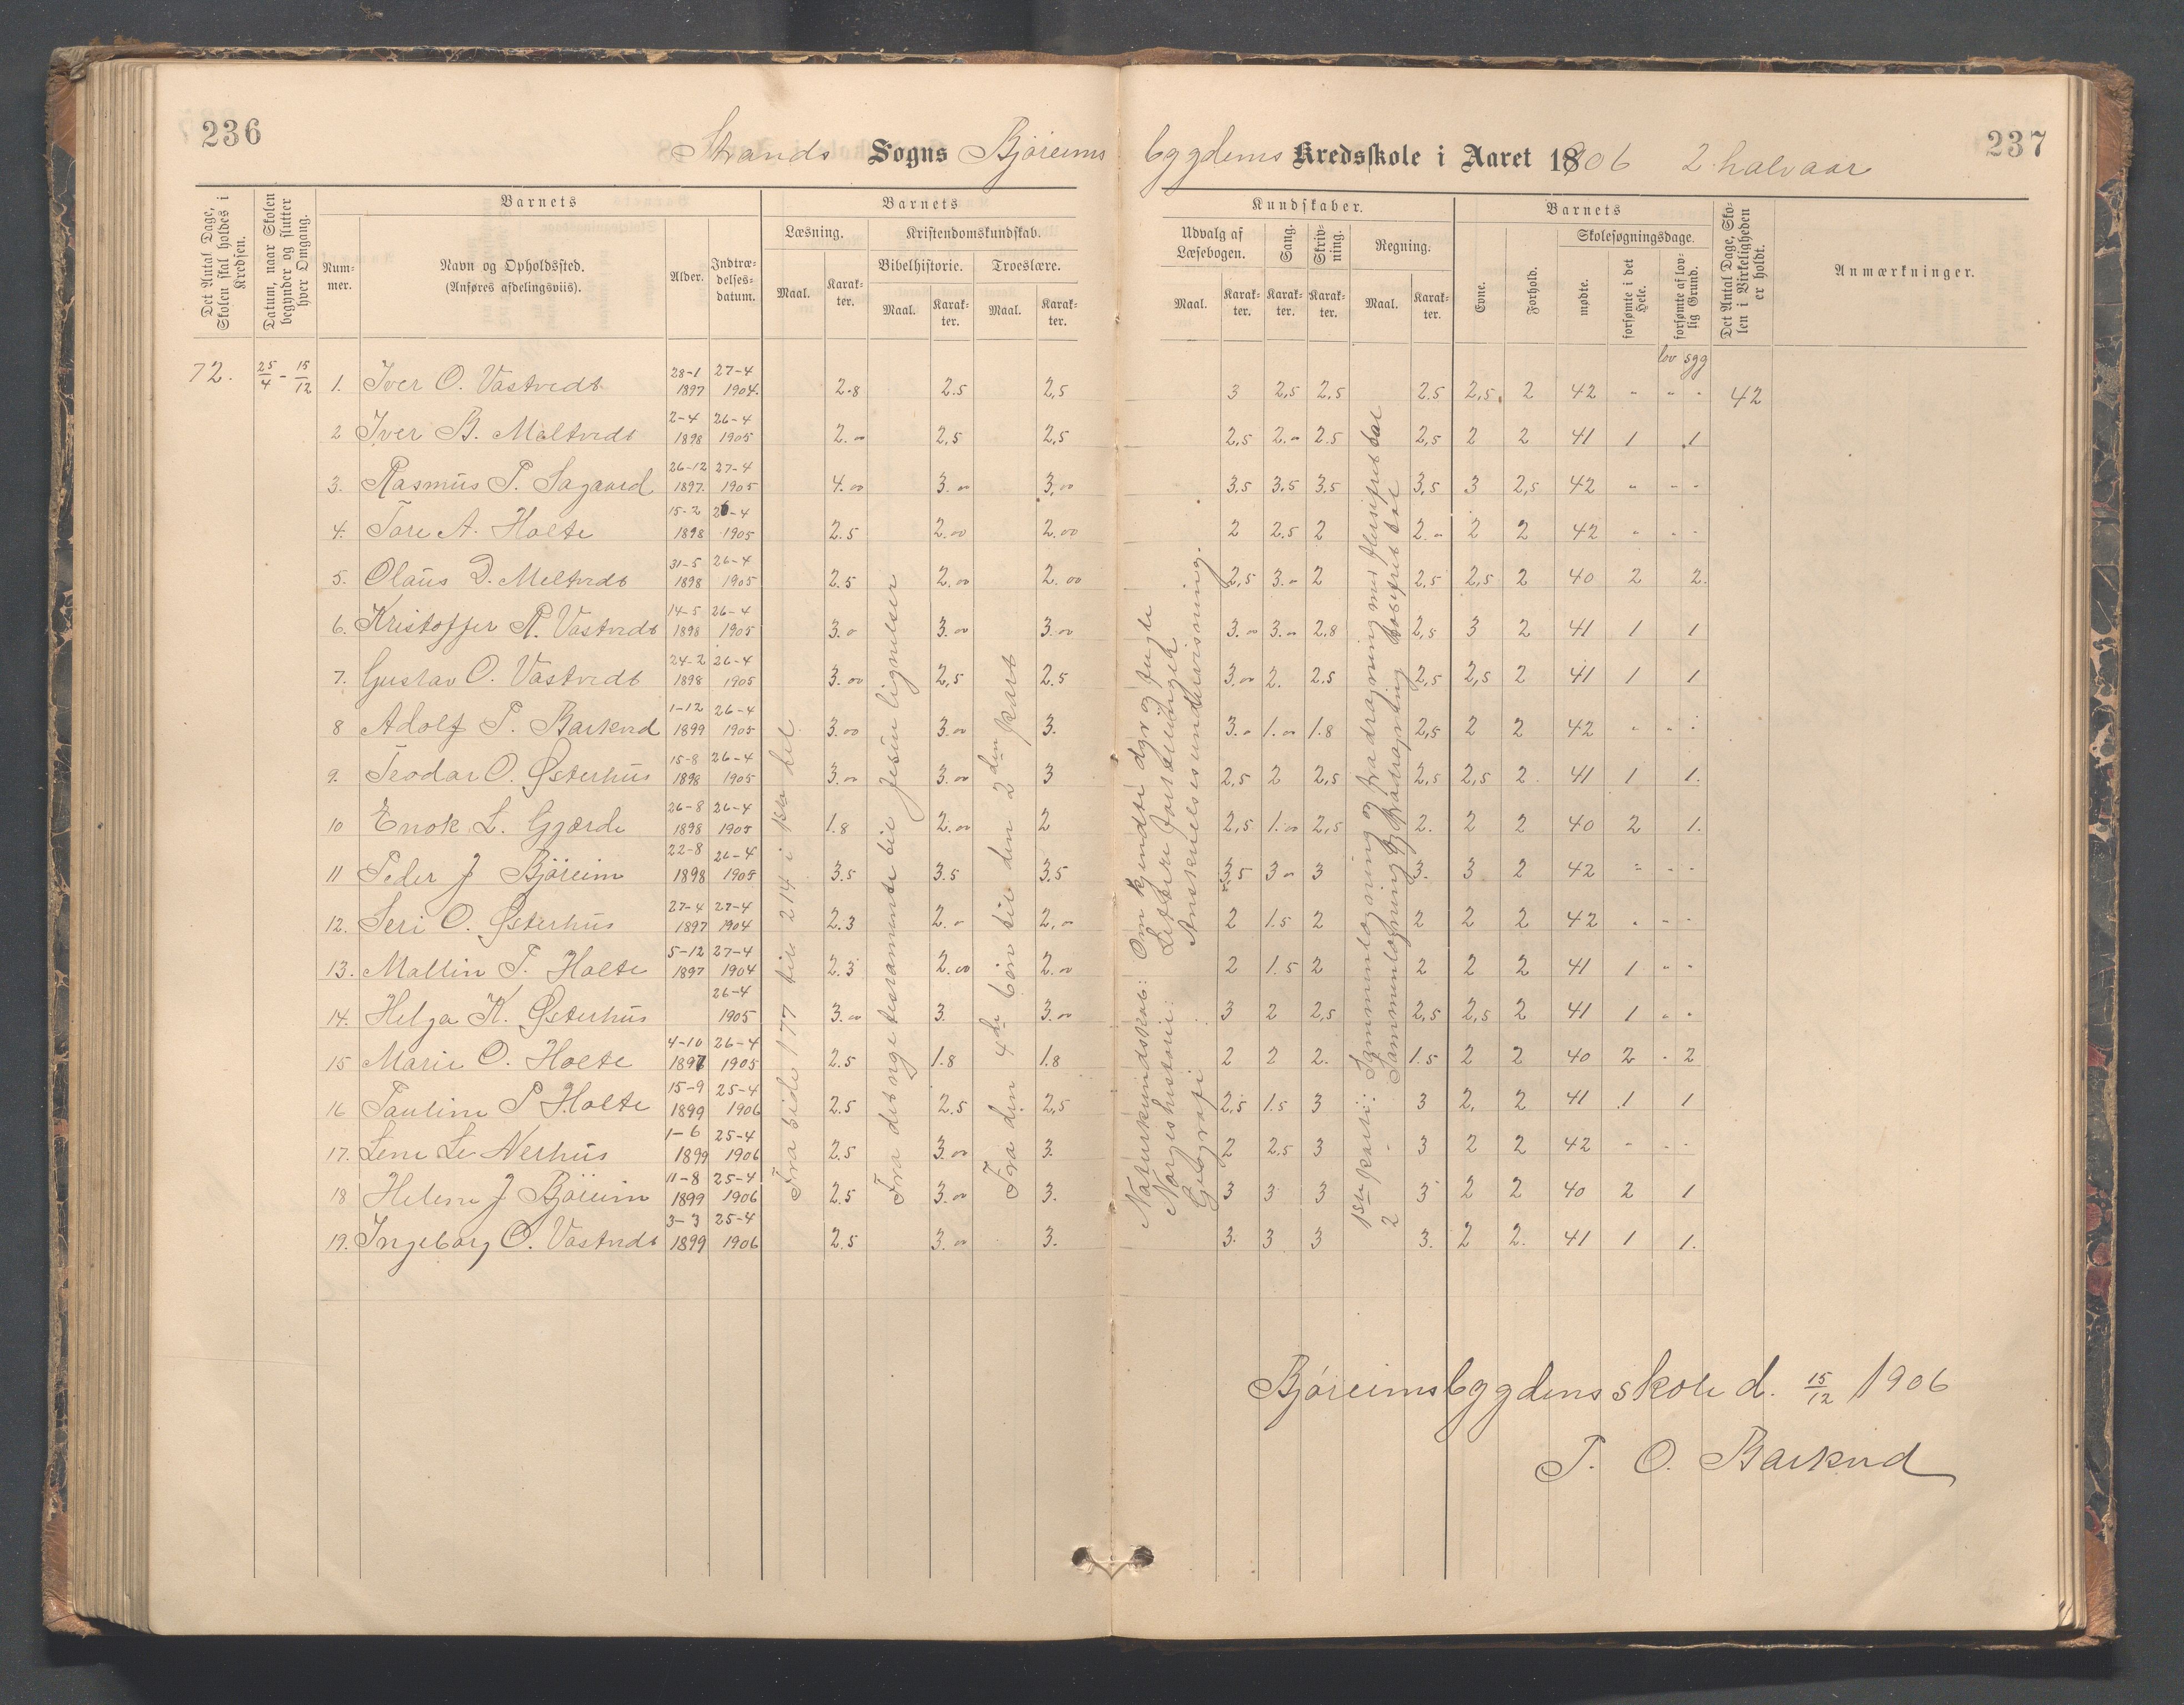 236
Strands Sogns Björeims
bygdens Kredsskole i Aaret 1906 2 halvaar
237
Det Antal Dage, Skolen skal holdes i Kredsen.
Datum, naar Skolen begynder og slutter hver Omgang.
Barnets
Nummer.
Navn og Opholdssted.
(Anføres afdelingsviis).
Alder.
Indtrædelsesdatum.
Barnets
Læsning.
Maal.
Karakter.
Kristendomskundskab.
Bibelhistorie.
Maal.
Karakter.
Troeslære.
Maal.
Karakter.
Kundskaber.
Udvalg af Læsebogen.
Maal.
Karakter.
Sang.
Karakter.
Skrivning.
Karakter.
Regning.
Maal.
Karakter.
Barnets
Evne.
Forhold.
Skolesøgningsdage.
mødte.
forsømte i det Hele.
forsømte af lovlig Grund.
Det Antal Dage, Skolen i Virkeligheden er holdt.
Anmærkninger.
lov sgg
72. 25/4 - 15/12 1. Iver O. Vastvedt 28-1 1897 27-4 1904. 2.8 2.5 2,5 3 2,5 2,5 2.5 2,5. 2 42 " " " 42
2 Iver B. Meltvedt 2-4 1898 26-4 1905 2.00 2,5 2,5 2,5 2.00 2.5 2,5 2 2 41 1 1
3. Rasmus P. Sagaard 26-12 1897. 27-4 1905 4.00 3.00 3.00 3.5 3.5 3,5 3,5 3 2,5 42 " " "
4. Tore A. Holte 15-2 1898 26-4 1905 2.5 2.00 2.00 2 2.5 2 2.00 2 2 42 " " "
5. Olaus D. Meltvedt 31-5 1898 26-4 1905 2.5 2.00 2.00 2,5 3.00 2 2,5 2,5 2 40 2 2.
6. Kristoffer R. Vastvedt 14-5 1898 26-4 1905 3.0 3.00 3.00 3.00 3.00 2.8 2,5 3 2 41 1 1
7. Gustav O. Vastvedt 24-2 1898 26-4 1905 3.00 2,5 2.5 3.00 2. 2.5 2,5 2,5 2 41 1 1
8 Adolf P. Barkved 1-12 1899 26-4 1905 3.00 3.00 3. 3.0 1.00 1.8 2,5 2 2 42 " " "
9. Teodor O. Østerhus 15-8 1898 26-4 1905 3.00 3.00 3 2,5 2 2,5 2,5 2,5 2 41 1 1.
10 Enok L. Gjærde 26-8 1898 26-4 1905 1.8 2.00 2 2,5 1.00 2,5 2. 2 2 40 2 1.
11 Peder J Björeim 22-8 1898 26-4 1905 3.5 3.5 3.5 3.5 3 00 3 3. 3 2 42 " " "
12. Seri O. Østerhus 27-4 1897 27-4 1904 2.3 2.0 2,00 2 1.5 2 2 2 2 42 " " "
13. Mallin T. Holte 5-12 1897 27-4 1904 2.3 2.00 2.00 2 1.5 2 2 2 2 41 1 " "
14. Helga K. Østerhus 26-4 1905 3.00 3. 3.00 3 2 2,5 2,5 2,5 2 41 1 " "
15 Marie O. Holte 4-10 1897 26-4 1905 2.5 1.8 1.8 2 2 2. 1.5 2 2 40 2 " 2
16 Pauline P Holte 15-9 1899 25-4 1906 2.5 2.5 2,5 2,5 1.5 3 3 2. 2 41 1 1
17. Lene Le Nerhus 1-6 1899 25-4 1906 2.5 3.00 3. 2 2.5 3 3 2 2 42 " " "
18 Helene J Björeim 11-8 1899 25-4 1906 2.5 3.00 3. 3 3 3 3 2 2 40 2 1
19. Ingeborg O. Vastvedt 3-3 1899 25-4 1906 2.5 3.00 3. 3. 3 3 3. 2 2. 41 1 1.
Fra side 177 til 214 i 1ste del
Fra det nye testamente til Jesu lignelser
Fra den 4de bøn til den 2den part
Naturkundskab: Om kjendte dyr og fugle
Norgeshistorie: Lettere fortællinger
Geografi: Anskuelsesundervisning.
1ste parti: Sammenlægning og fradragning med flersifret tal
2 - Sammenlægning og fradragning
Björeimsbygdens skole d. 15/12 1906
T. O. Barkved